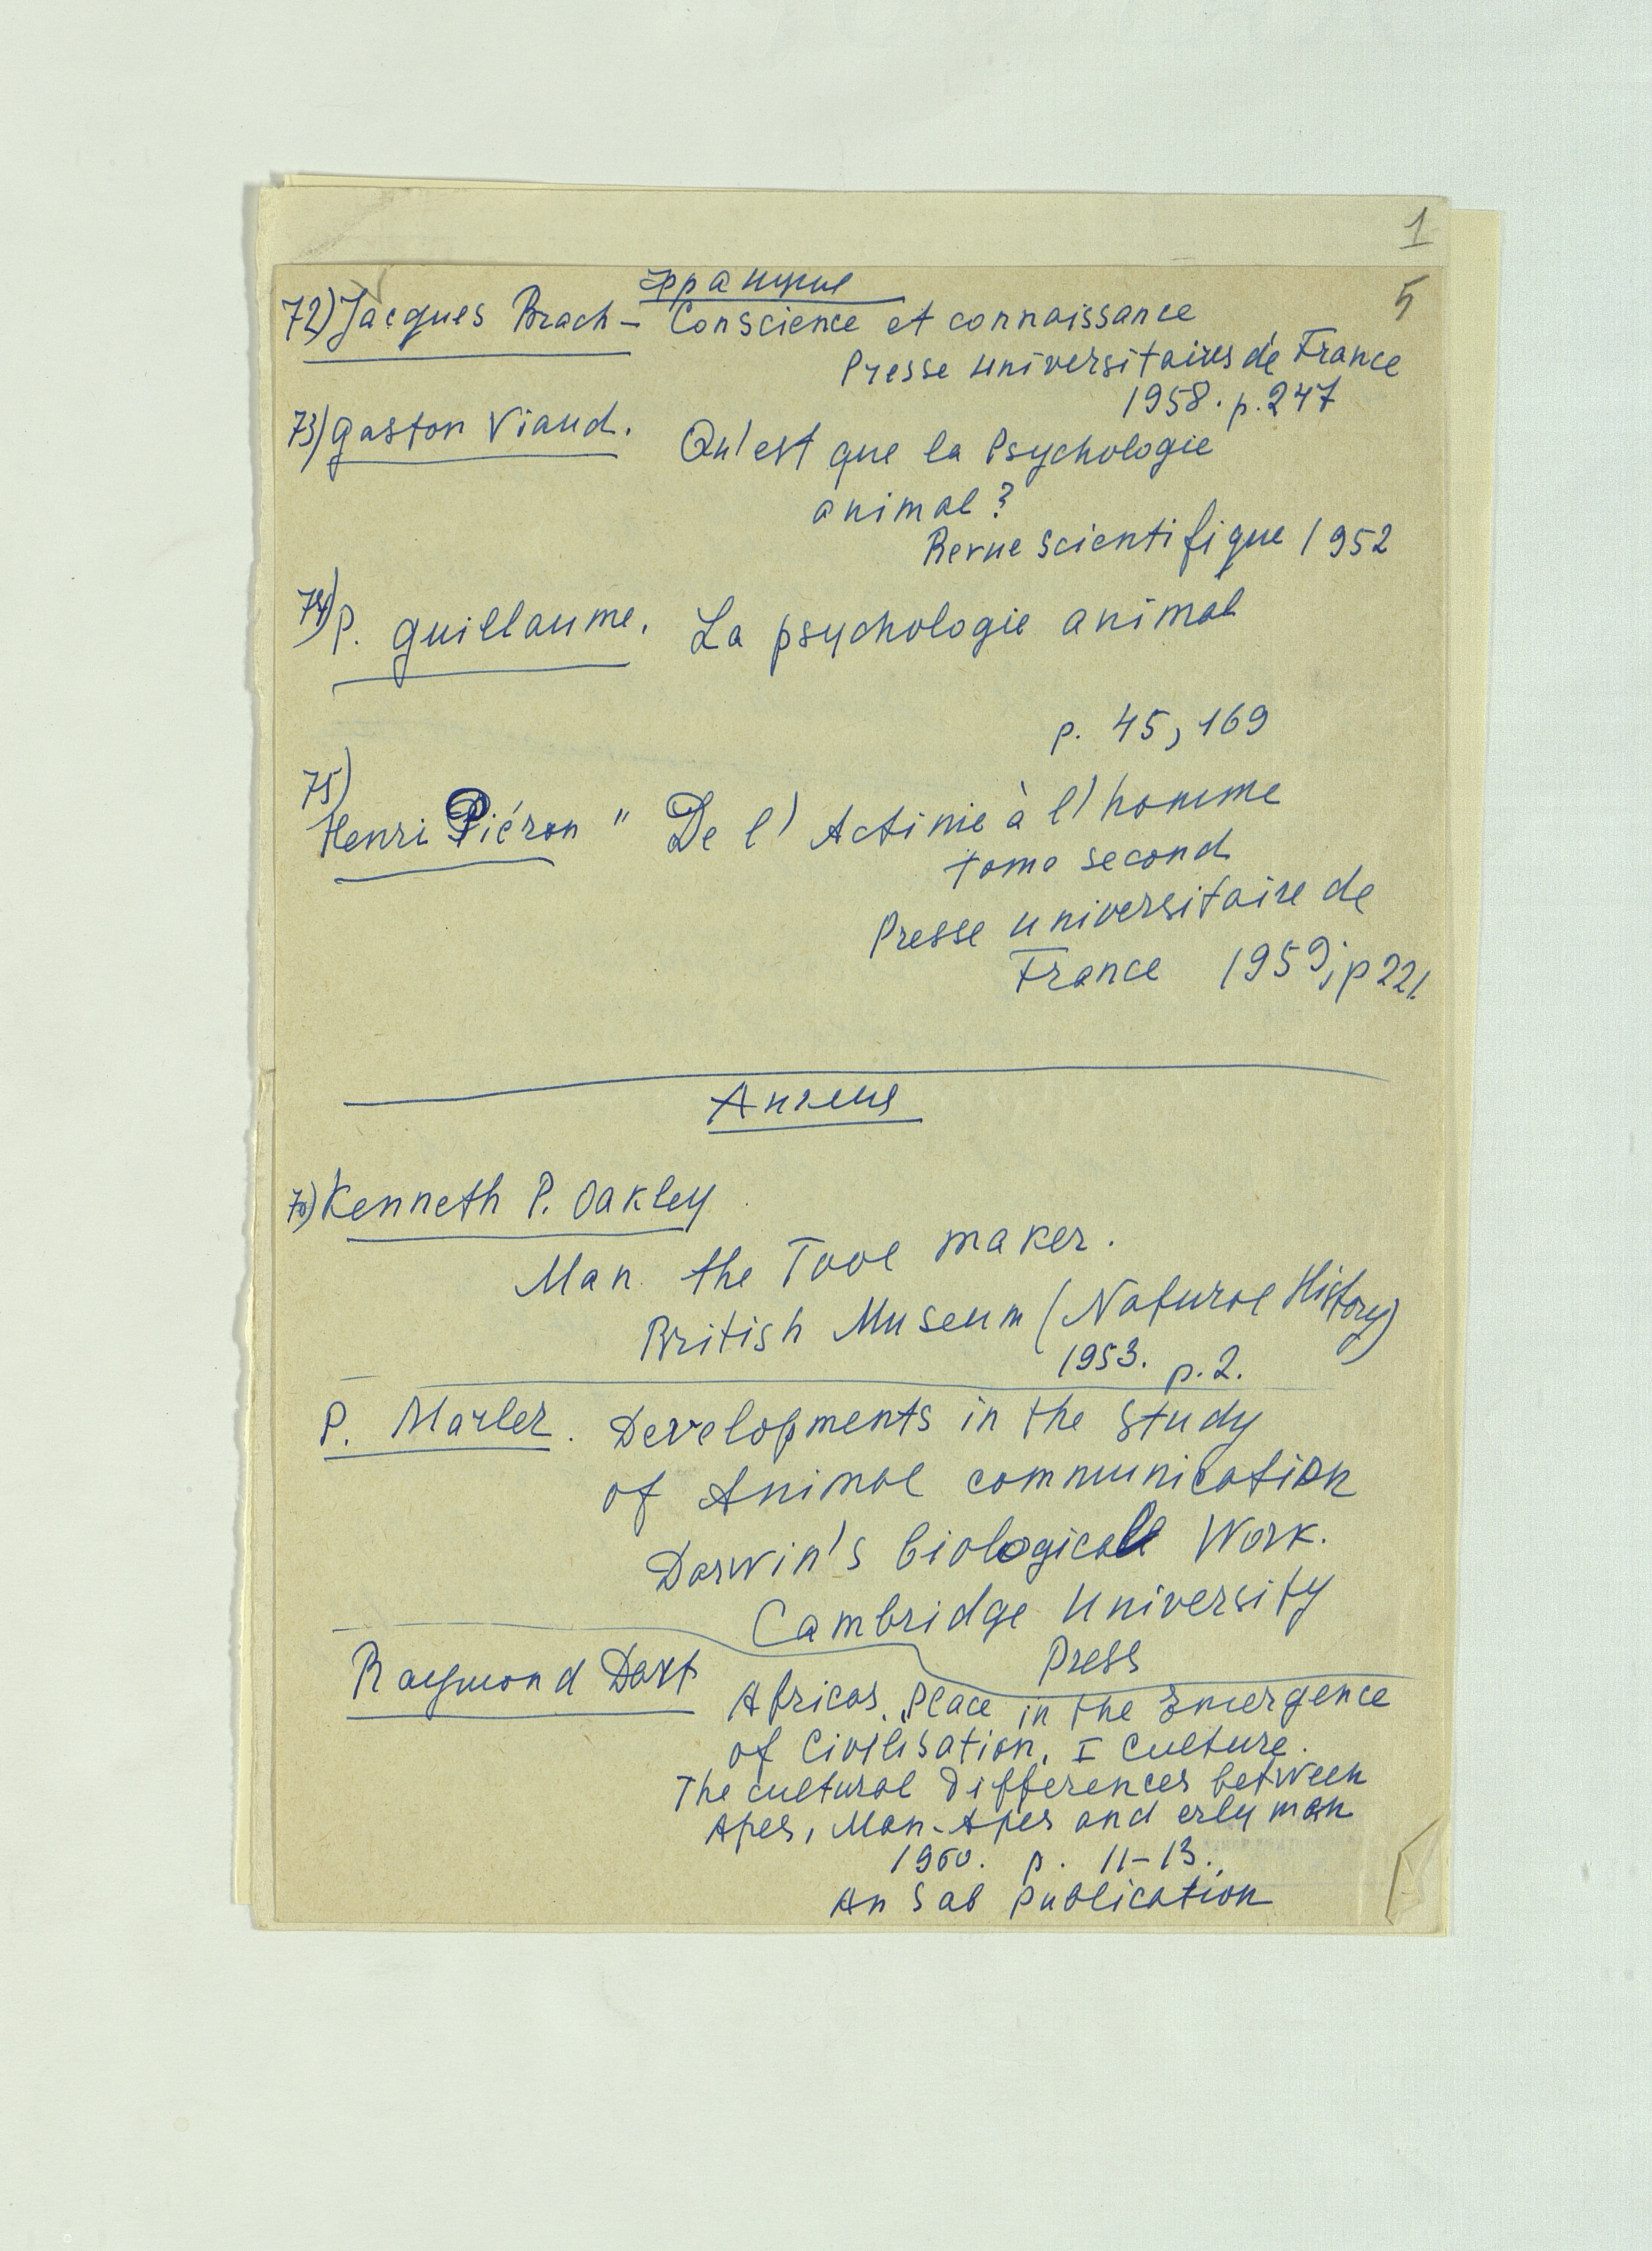 1
5
Франция
72) Jacques Brach – Conscience et connaissance
Presse universitaires de France
1958. p. 247
73) Gaston Viaud. Qu'est que la Psychologie
animal?
Revue scientifique 1952
74) P. Guillaume. La psychologie animal
p. 45, 169
75)
Henri Piéron " De l' Actinie à l'homme
tome second
Presse universitaire de
France 1959; p 221.
Англия
76) Kenneth P. Oakley
Man the Tool maker.
British Museum (Natural History)
1953. p. 2.
P. Marler. Developments in the study
of Animal communication
Darwin's biological Work.
Cambridge University
Press
Raymond Dart
Africas. Place in the Emergence
of Civilisation. I Culture.
The cultural Differences between
Apes, Man-Apes and erly man
1960. p. 11–13.
An Sab publication